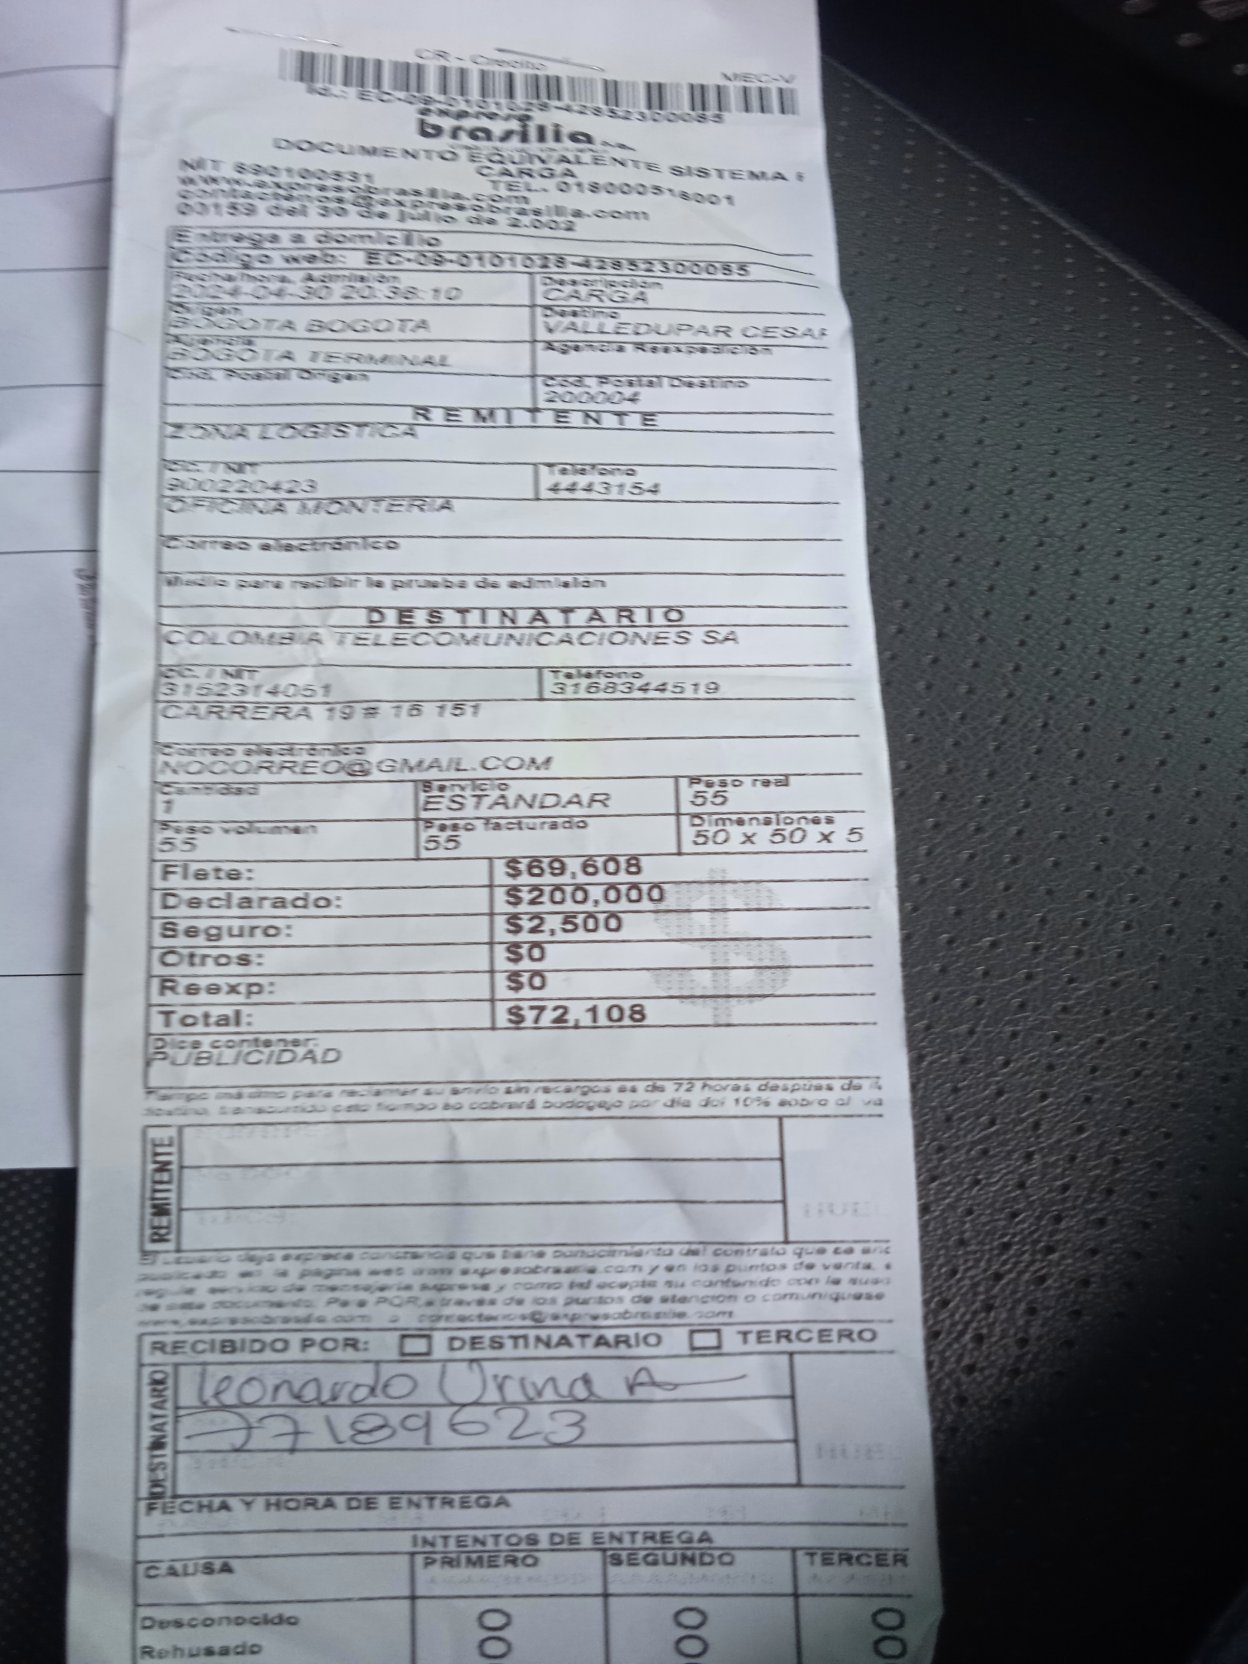 CR - Credito
MEC-V
Id.: EC-09-0101028-42852300085
expreso
brasilia
DOCUMENTO EQUIVALENTE SISTEMA
NIT 890100531 CARGA
www.expresobrasilia.com TEL. 018000518001
contactenos@expresobrasilia.com
00153 del 30 de julio de 2.002
Entrega a domicilio
Código web: EC-09-0101028-42852300085
Fecha/hora. Admisión Descripción
2024-04-30 20:38:10 CARGA
Origen Destino
BOGOTA BOGOTA VALLEDUPAR CESAR
Agencia Agencia Reexpedición
BOGOTA TERMINAL
Cod. Postal Origen Cod. Postal Destino
200004
REMITENTE
ZONA LOGISTICA
CC. / NIT Teléfono
900220423 4443154
OFICINA MONTERIA
Correo electrónico
Medio para recibir la prueba de admisión
DESTINATARIO
COLOMBIA TELECOMUNICACIONES SA
CC. / NIT Teléfono
3152314051 3168344519
CARRERA 19 # 16 151
Correo electrónico
NOCORREO@GMAIL.COM
Cantidad Servicio Peso real
1 ESTANDAR 55
Peso volumen Peso facturado Dimensiones
55 55 50 x 50 x 5
Flete: $69,608
Declarado: $200,000
Seguro: $2,500
Otros: $0
Reexp: $0
Total: $72,108
Dice contener:
PUBLICIDAD
Tiempo máximo para reclamar su envío sin recargos es de 72 horas después de
destino, transcurrido este tiempo se cobrará bodegaje por día del 10% sobre el va
REMITENTE
El usuario deja expresa constancia que tiene conocimiento del contrato que se enc
publicado en la página web www.expresobrasilia.com y en los puntos de venta,
regula servicio de mensajería expresa y como tal acepta su contenido con la
de este documento. Para PQR a través de los puntos de atención o comuníquese
www.expresobrasilia.com o contactenos@expresobrasilia.com
RECIBIDO POR: DESTINATARIO TERCERO
DESTINATARIO
Leonardo Urina A
77189623
FECHA Y HORA DE ENTREGA
INTENTOS DE ENTREGA
CAUSA PRIMERO SEGUNDO TERCER
Desconocido
Rehusado